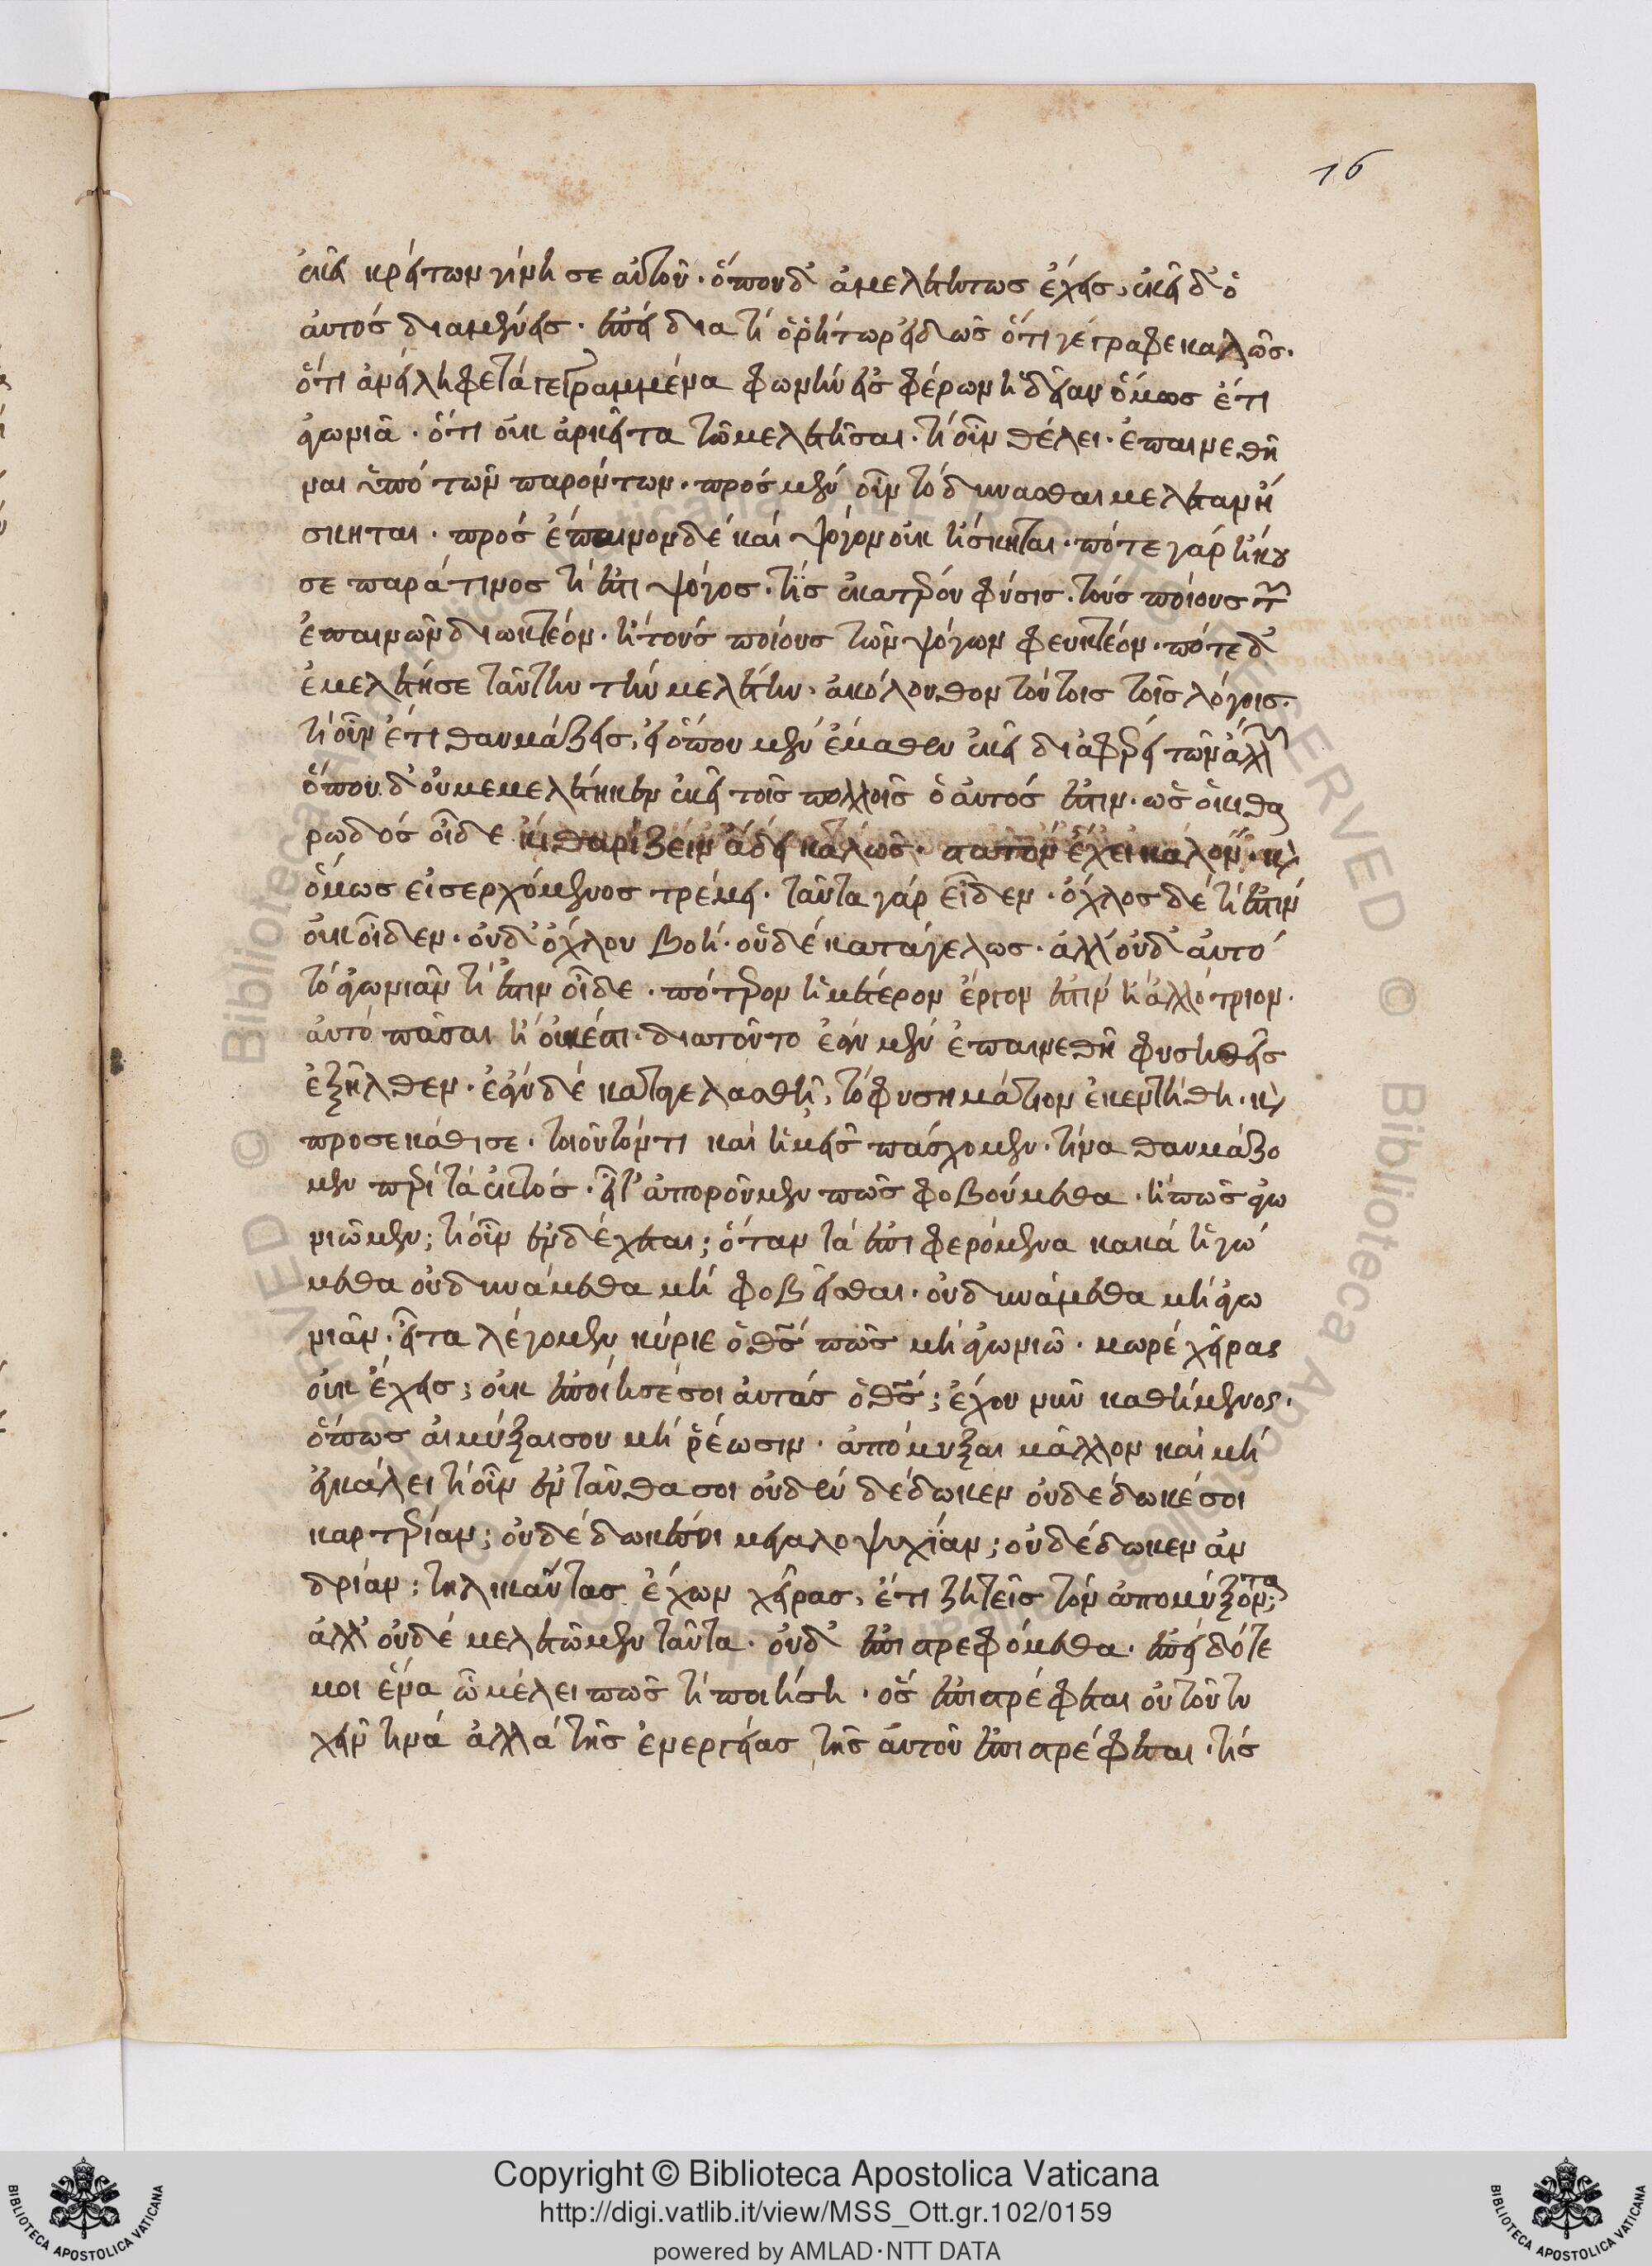 16
ἐκεῖ κρείττων γίνῃ σε αὐτοῦ· ὅπου δ' ἀμελετήτως ἔχεις, ἐκεῖ δ' ὁ
αὐτός διαμένεις· ἐπεί δια τί ὁ ῥήτωρ εἰδὼς ὅτι γέγραφε καλῶς·
ὅτι ἀνείληφε τά γεγραμμένα φωνήν εἰσφέρων ἡδεῖαν ὅμως ἔτι
ἀγωνιᾶ· ὅτι οὐκ ἀρκεῖται τῶ μελετῆσαι· τί οὖν θέλει· ἐπαινεθῆ
ναι ὑπό τῶν παρόντων· πρός μέν οὖν τό δύνασθαι μελετᾶν ἤ
σκηται· πρός ἔπαινον δέ καί ψόγον οὐκ ἤσκηται· πότε γάρ ἤκου
σε παρά τινος τί ἐστι ψόγος· τίς ἑκατέρου φύσις· τούς ποίους τῶν
ἐπαινῶν διωκτέον· ἢ τούς ποίους τῶν ψόγων φευκτέον· πότε δ'
ἐμελέτησε ταύτην τήν μελέτην· ἀκόλουθον τούτοις τοῖς λόγοις·
τί οὖν ἔτι θαυμάζεις, εἰ ὅπου μέν ἔμαθεν ἐκεῖ διαφέρει τῶν ἄλλων
ὅπου δ' οὐ μεμελέτηκεν ἐκεῖ τοῖς πολλοῖς ὁ αὐτός ἐστιν· ὡς ὁ κιθα
ρωδός οἶδε κιθαρίζειν ἄδει καλῶς· στατόν ἔχει καλόν· καὶ
ὅμως εἰσερχόμενος τρέμει· ταῦτα γάρ εἶδεν· ὄχλος δέ τί ἐστιν
οὐκ οἶδεν· οὐδ' ὄχλου βοή· οὐδέ κατάγελως· ἀλλ' οὐδ' αὐτό
τό ἀγωνιᾶν τί ἐστιν οἶδε· πότερον ἡμέτερον ἔργον ἐστίν ἢ ἀλλότριον·
αὐτό παῦσαι ἢ οὐκ ἔστι· διατοῦτο ἐάν μέν ἐπαινεθῆ φυσηθείς
ἐξῆλθεν· ἐάν δέ καταγελασθῆ, τό φυσημάτιον ἐκεντήθη· καὶ
προσεκάθισε· τοιοῦτόν τι καί ἡμεῖς πάσχομεν· τίνα θαυμάζο
μεν περί τά ἐκτός· εἶτ' ἀποροῦμεν πῶς φοβούμεθα· ἢ πῶς ἀγω
νιῶμεν; τί οὖν ἐνδέχεται; ὅταν τά ἐπιφερόμενα κακά ἡγώ
μεθα οὐ δυνάμεθα μή φοβεῖσθαι· οὐ δυνάμεθα μή ἀγω
νιᾶν· εἶτα λέγομεν κύριε ὁ θσ πῶς μή ἀγωνιῶ· μωρέ χεῖρας
οὐκ ἔχεις; οὐκ ἐποίησέ σοι αὐτάς ὁ θσ; εὔχου νῦν καθήμενος·
ὅπως αἱ μύξαι σου μή ῥέωσιν· ἀπόμυξαι μᾶλλον καί μή
ἐγκάλει τί οὖν ἐνταῦθα σοι οὐδέν δέδωκεν οὐδέδωκέ σοι
καρτερίαν; οὐδέδωκέ σοι μεγαλοψυχίαν; οὐδέδωκεν ἀν
δρίαν; τηλικαύτας ἔχων χεῖρας, ἔτι ζητεῖς τόν ἀπομύξοντα;
ἀλλ' οὐδέ μελετῶμεν ταῦτα· οὐδ' ἐπιστρεφόμεθα· ἐπεί δότε
μοι ἕνα ᾧ μέλει πῶς τί ποιήση· ὅς ἐπιστρέφεται οὐ τοῦ τυ
χεῖν τινά ἀλλά τῆς ἐνεργείας τῆς αὑτοῦ ἐπιστρέφεται· τίς
Copyright © Biblioteca Apostolica Vaticana
http://digi.vatlib.it/view/MSS_Ott.gr.102/0159
powered by AMLAD·NTT DATA